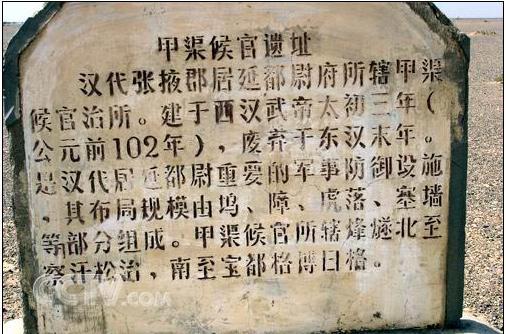 甲渠候官遗址
汉代张掖郡居延都尉府所辖甲渠
候官治所。建于西汉武帝太初三年（
公元前102年），废弃于东汉末年。
是汉代居延都尉重要的军事防御设施
，其布局规模由坞、障、虎落、塞墙
等部分组成。甲渠候官所辖烽燧北至
察汗松治，南至宝都格博日格。
CCTV.COM